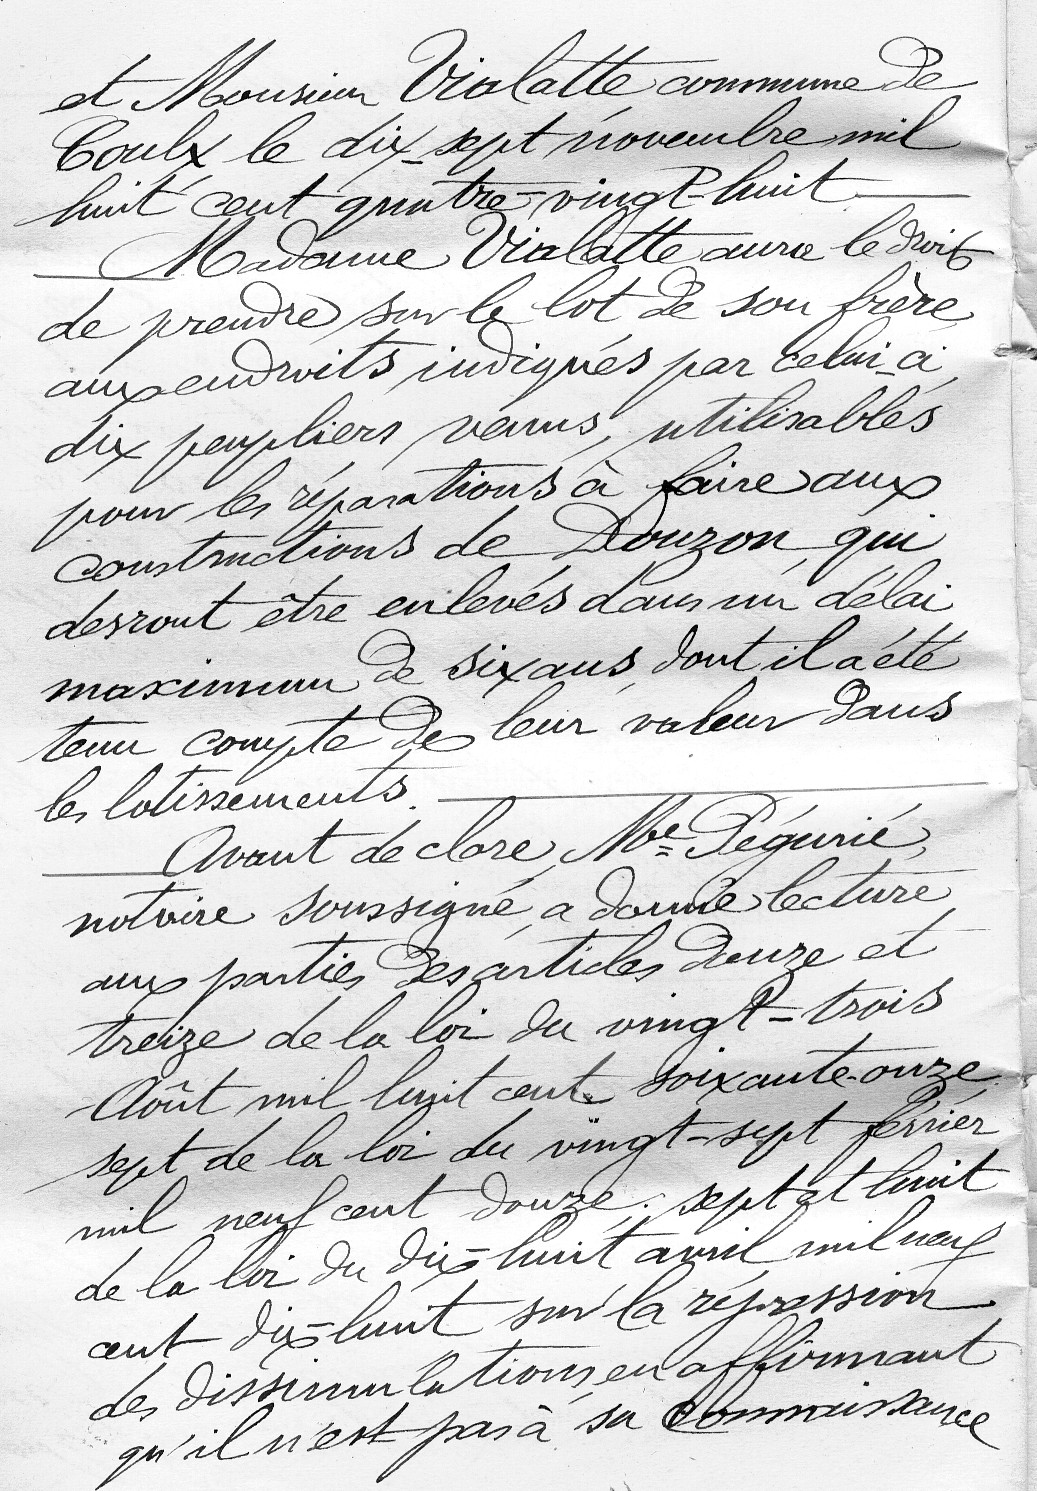 et Monsieur Vialatte commune de
Coulx le dix-sept novembre mil
huit cent quatre-vingt-huit
Madame Vialatte aura le droit
de prendre sur le lot de son frère
aux endroits indiqués par celui-ci,
dix peupliers venus, utilisables
pour les réparations à faire aux
constructions de Douzon, qui
devront être enlevés dans un délai
maximum de six ans, dont il a été
tenu compte de leur valeur dans
les lotissements.
Avant de clore, Me Pégurié,
notaire soussigné, a donné lecture
aux parties des articles douze et
treize de la loi du vingt-trois
Août mil huit cent soixante-onze,
sept de la loi du vingt-sept février
mil neuf cent douze; sept et huit
de la loi du dix-huit avril mil neuf
cent dix-huit sur la répression
des dissimulations, en affirmant
qu'il n'est pas à sa connaissance